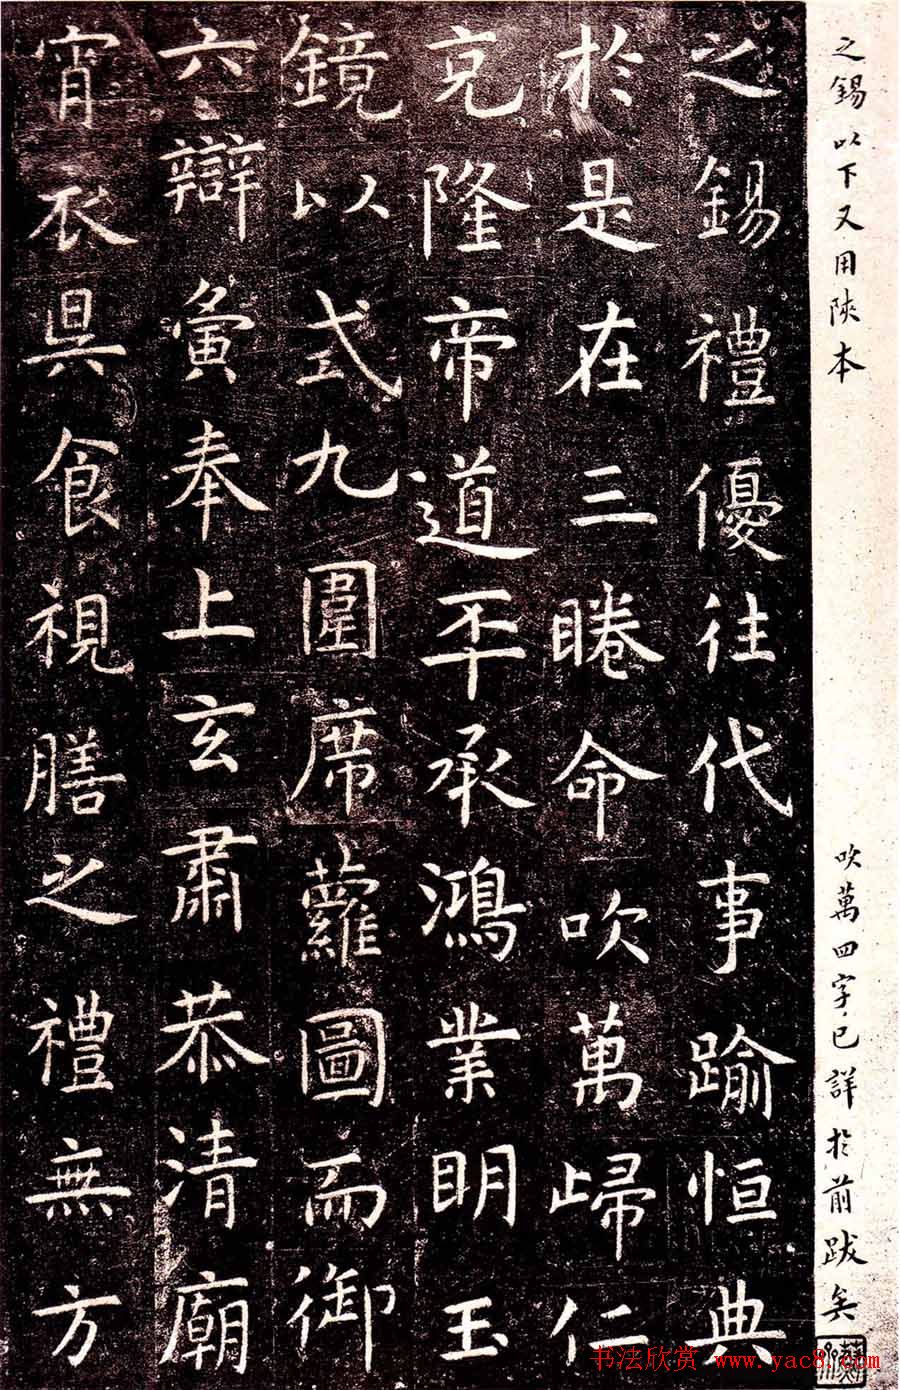 之錫以下又用陝本
吹萬四字已詳於前跋矣
之錫禮優往代事踰恒典
於是在三睠命吹萬歸仁
克隆帝道丕承鴻業眀玉
鏡以式九圍席蘿圖而御
六辯寅奉上玄肅恭清廟
宵衣昃食視膳之禮無方
书法欣赏 www.yac8.com